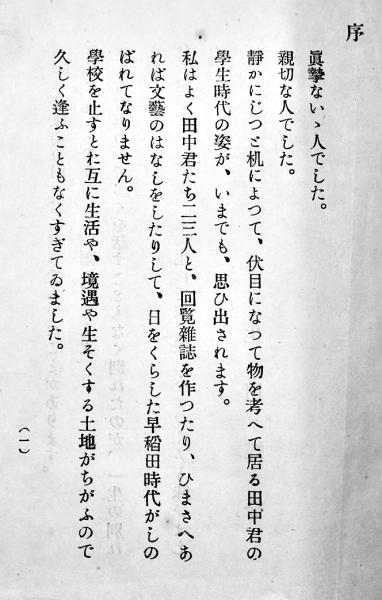 序
眞摯ないゝ人でした。
親切な人でした。
靜かにじつと机によつて、伏目になつて物を考へて居る田中君の
學生時代の姿が、いまでも、思ひ出されます。
私はよく田中君たち二三人と、回覧雜誌を作つたり、ひまさへあ
れば文藝のはなしをしたりして、日をくらした早稻田時代がしの
ばれてなりません。
學校を止すとお互に生活や、境遇や生そくする土地がちがふので
久しく逢ふこともなくすぎてゐました。
（一）